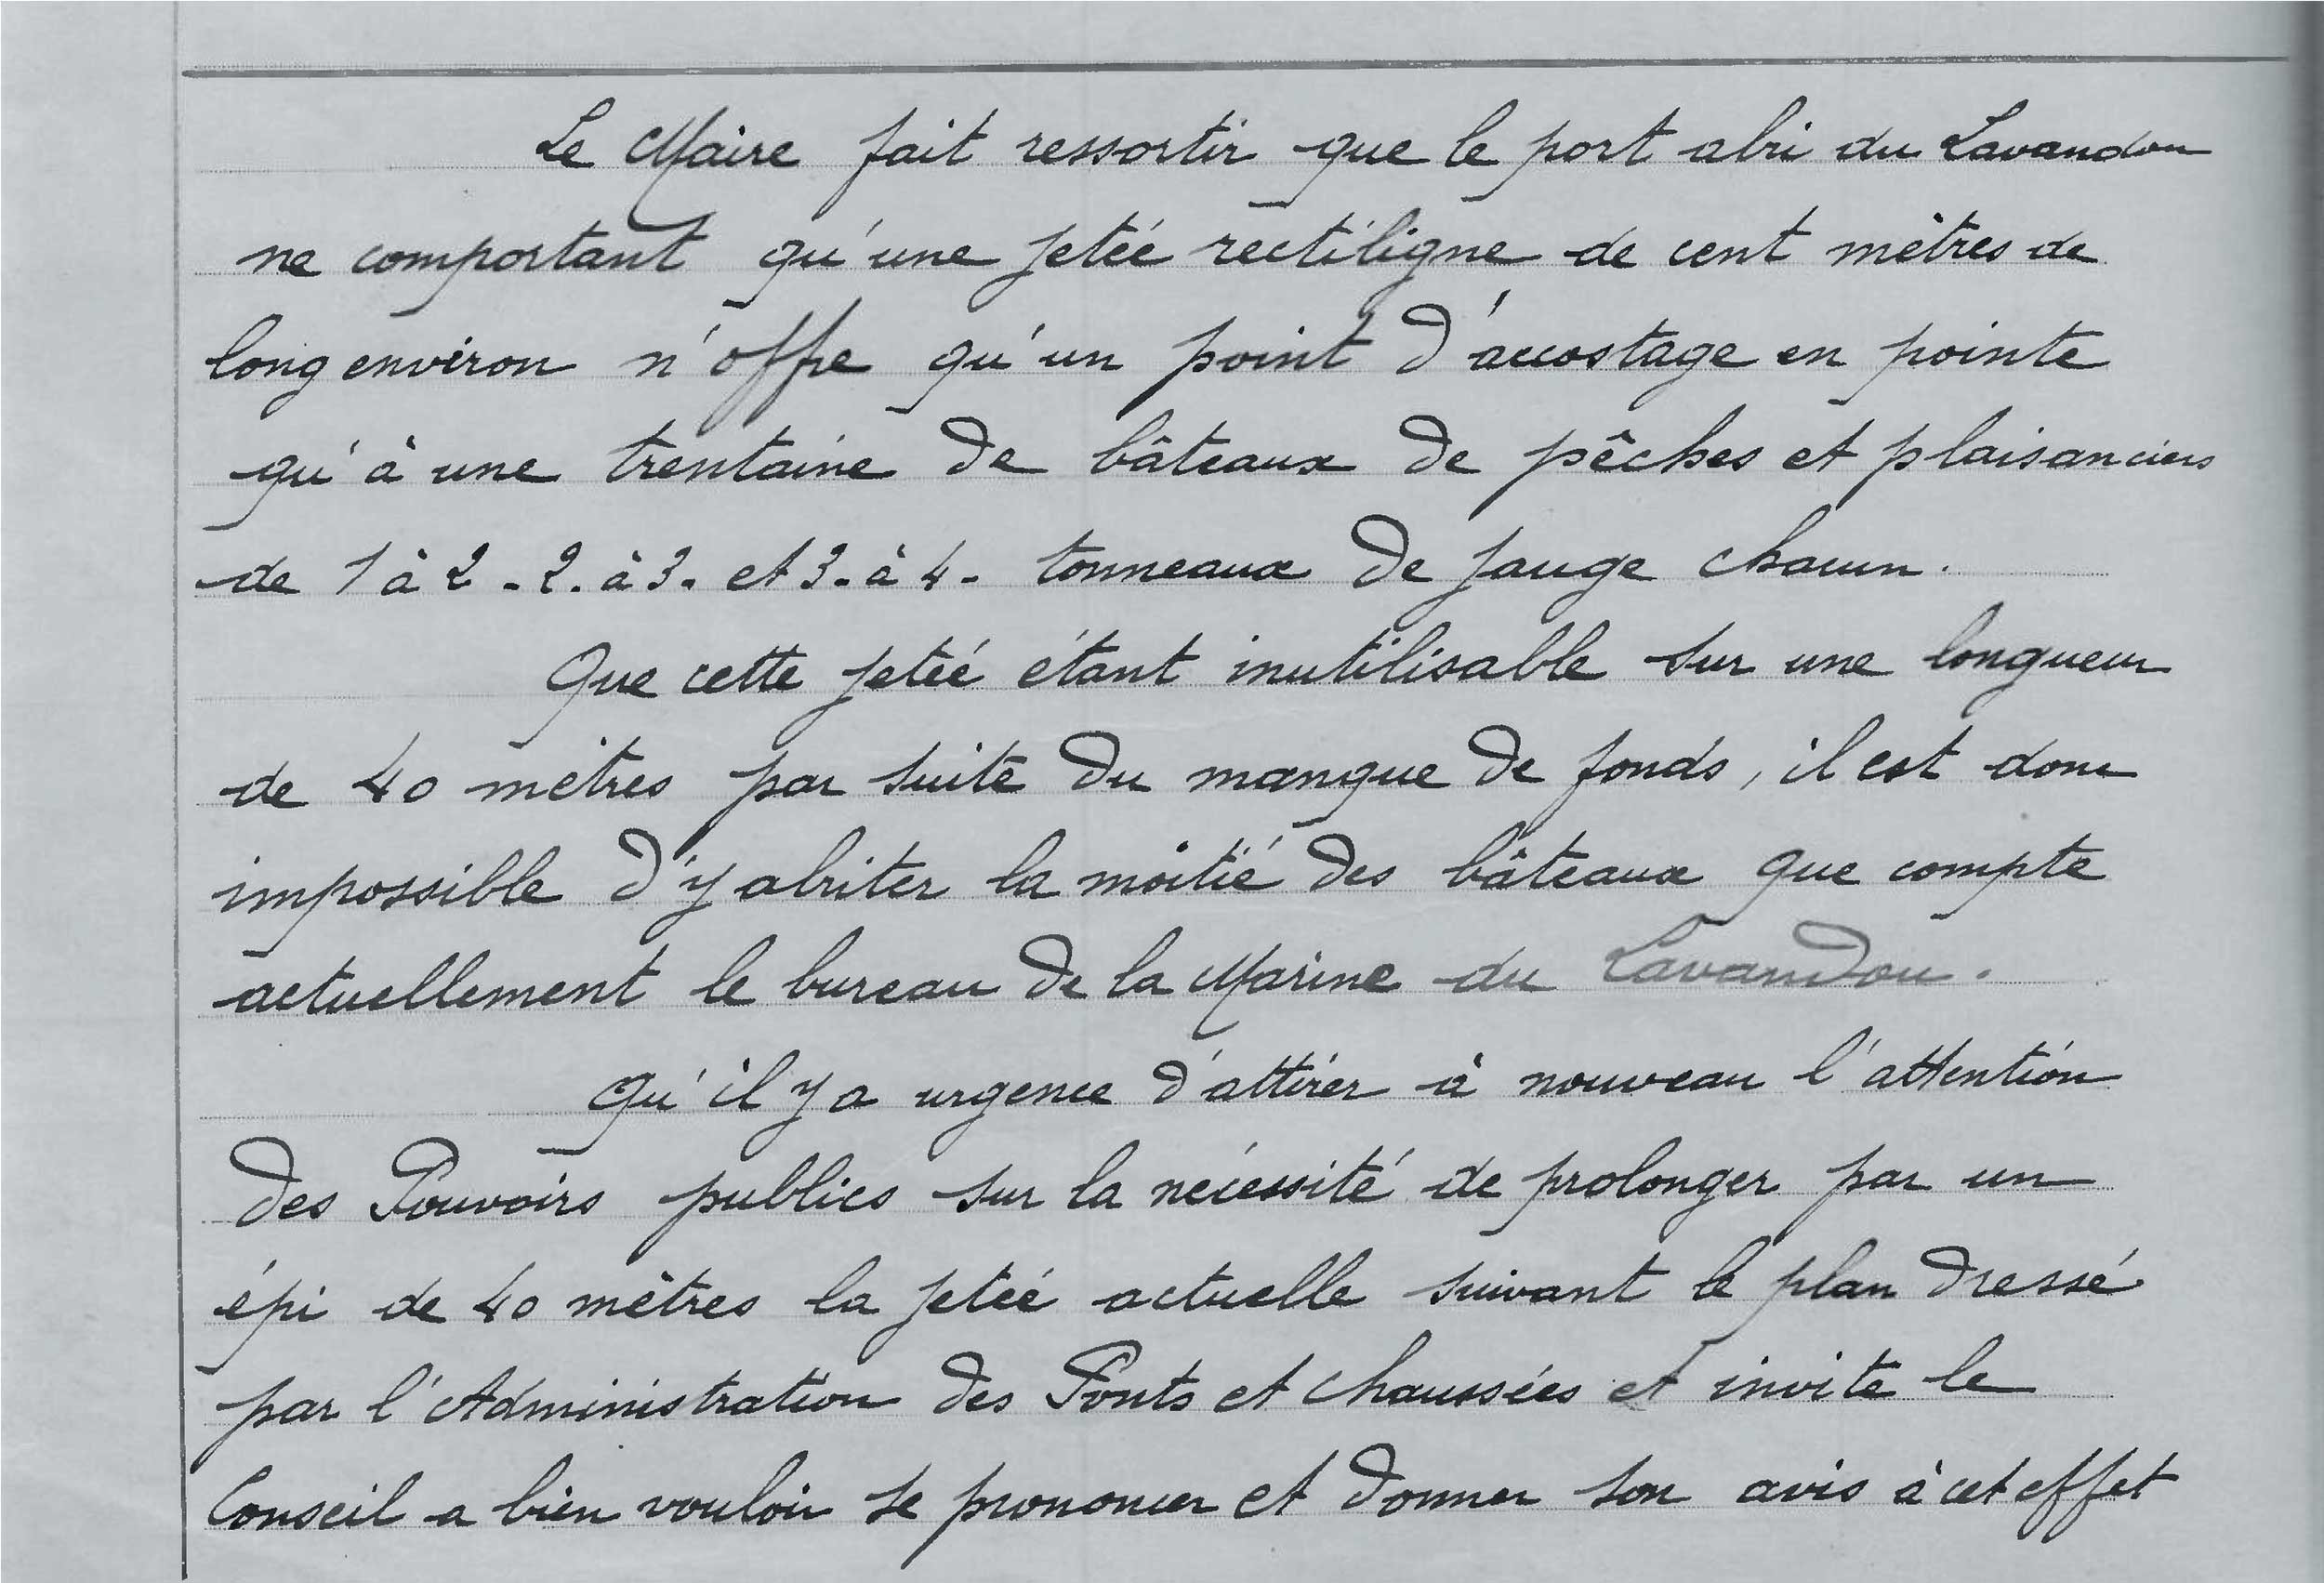 Le Maire fait ressortir que le port abri du Lavandou
ne comportant qu'une jetée rectiligne de cent mètres de
long environ n'offre qu'un point d'accostage en pointe
qu'à une trentaine de bâteaux de pêches et plaisanciers
de 1 à 2 - 2. à 3. et 3. à 4 - tonneaux de jauge chacun.
Que cette jetée étant inutilisable sur une longueur
de 40 mètres par suite du manque de fonds, il est donc
impossible d'y abriter la moitié des bâteaux que compte
actuellement le bureau de la Marine du Lavandou.
Qu'il y a urgence d'attirer à nouveau l'attention
des Pouvoirs publics sur la nécessité de prolonger par un
épi de 40 mètres la jetée actuelle suivant le plan dressé
par l'Administration des Ponts et Chaussées et invite le
Conseil a bien vouloir se prononcer et donner son avis à cet effet